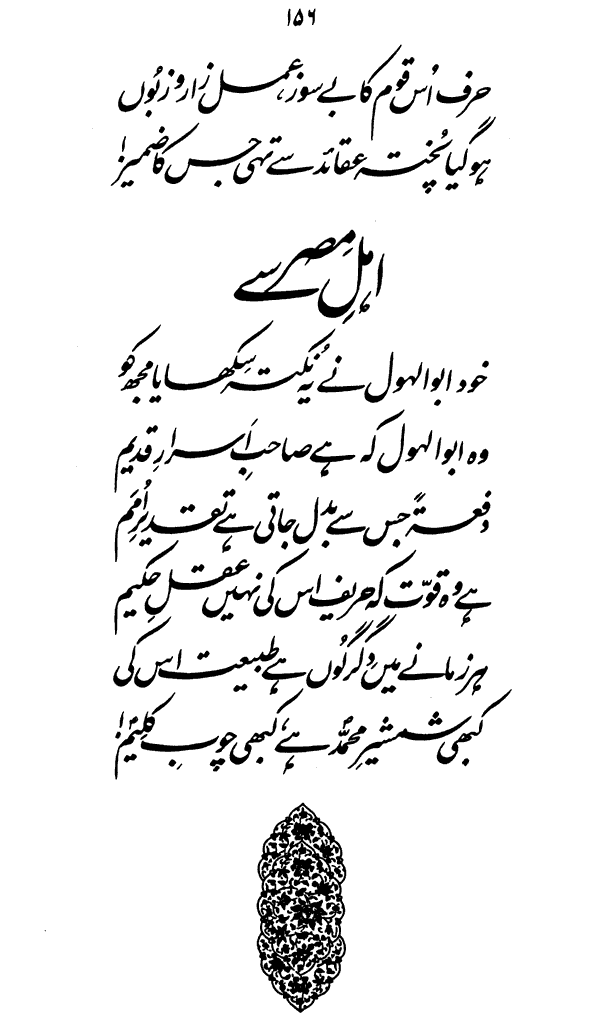 ۱۵۶
حرف اُس قوم کا بے سوز، عمل زار و زبُوں
ہو گیا پُختہ عقائد سے تہی جس کا ضمیر!
اہلِ مِصر سے
خود ابوالہول نے یہ نُکتہ سِکھایا مجھ کو
وہ ابوالہول کہ ہے صاحبِ اَسرارِ قدیم
دفعۃً جس سے بدل جاتی ہے تقدیرِ اُمَم
ہے وہ قوّت کہ حریف اس کی نہیں عقلِ حکیم
ہر زمانے میں دِگرگُوں ہے طبیعت اس کی
کبھی شمشیرِ محمدؐ ہے، کبھی چوبِ کلیمؑ!